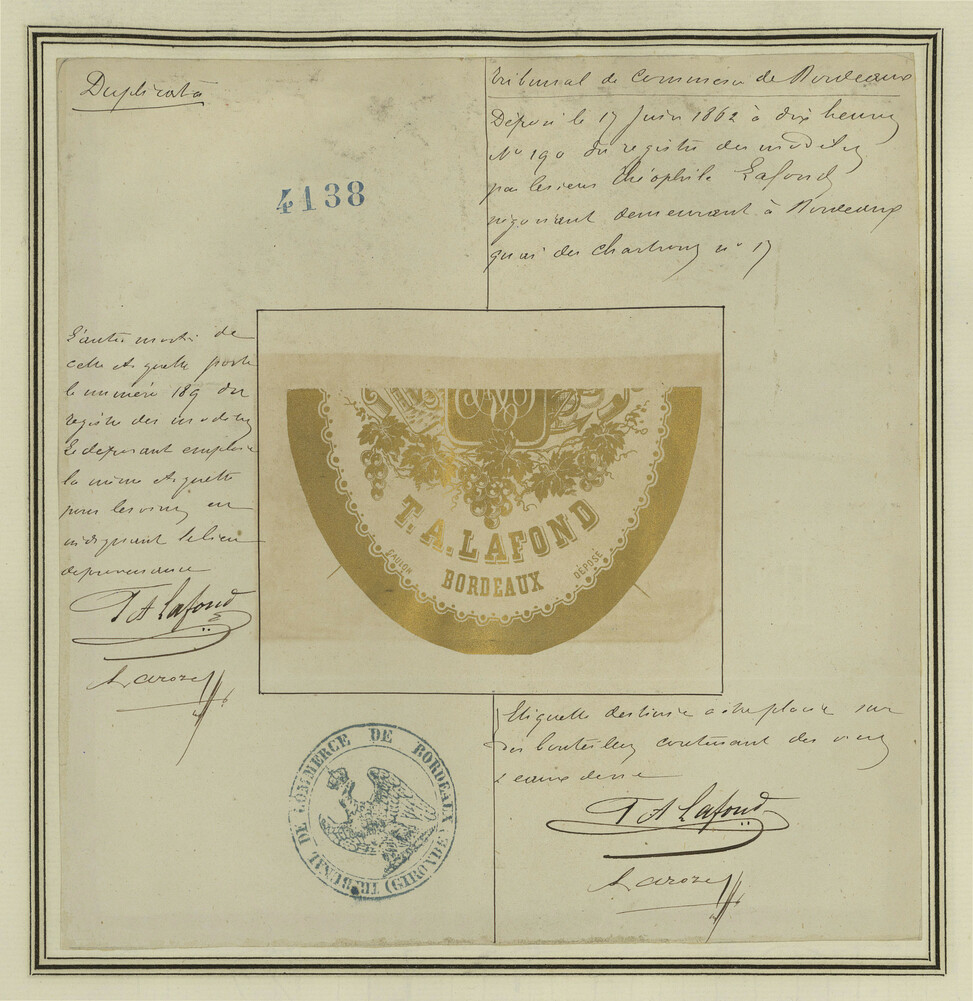 Duplicata
4138
Tribunal de Commerce de Bordeaux
Déposé le 17 Juin 1862 à dix heures
No 190 du registre des modèles
par le sieur Théophile Lafond
négociant demeurant à Bordeaux
quai des Chartrons no 17
L'autre moitié de
cette etiquette porte
le numéro 189 du
registre des modèles
Le déposant emploie
la même etiquette
pour les vins en
indiquant le lieu
de provenance
T A Lafond
T. A. LAFOND
BORDEAUX
DÉPOSÉ
TRIBUNAL DE COMMERCE DE BORDEAUX (GIRONDE)
Etiquette destinée à être placée sur
des bouteilles contenant des vins
& eaux de vie
T A Lafond